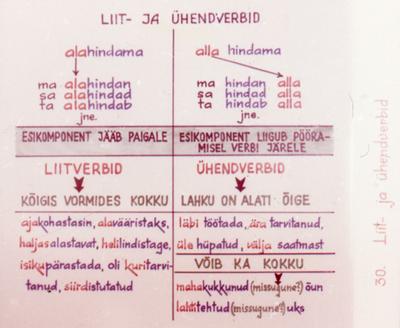 LIIT- JA ÜHENDVERBID
alahindama
ma alahindan
sa alahindad
ta alahindab
jne.
ESIKOMPONENT JÄÄB PAIGALE
LIITVERBID
KÕIGIS VORMIDES KOKKU
ajakohastasin, alavääristaks,
haljasalastavat, halilindistage,
isikupärastada, oli kuritarvi-
tanud, siirdistutatud
alla hindama
ma hindan alla
sa hindad alla
ta hindab alla
jne.
ESIKOMPONENT LIIGUB PÖÖRA-
MISEL VERBI JÄRELE
ÜHENDVERBID
LAHKU ON ALATI ÕIGE
läbi töötada, ära tarvitanud,
üle hüpatud, välja saatmast
VÕIB KA KOKKU
mahakukkunud (missugune?) õun
lahtitehtud (missugune?) uks
30. Liit- ja ühendverbid